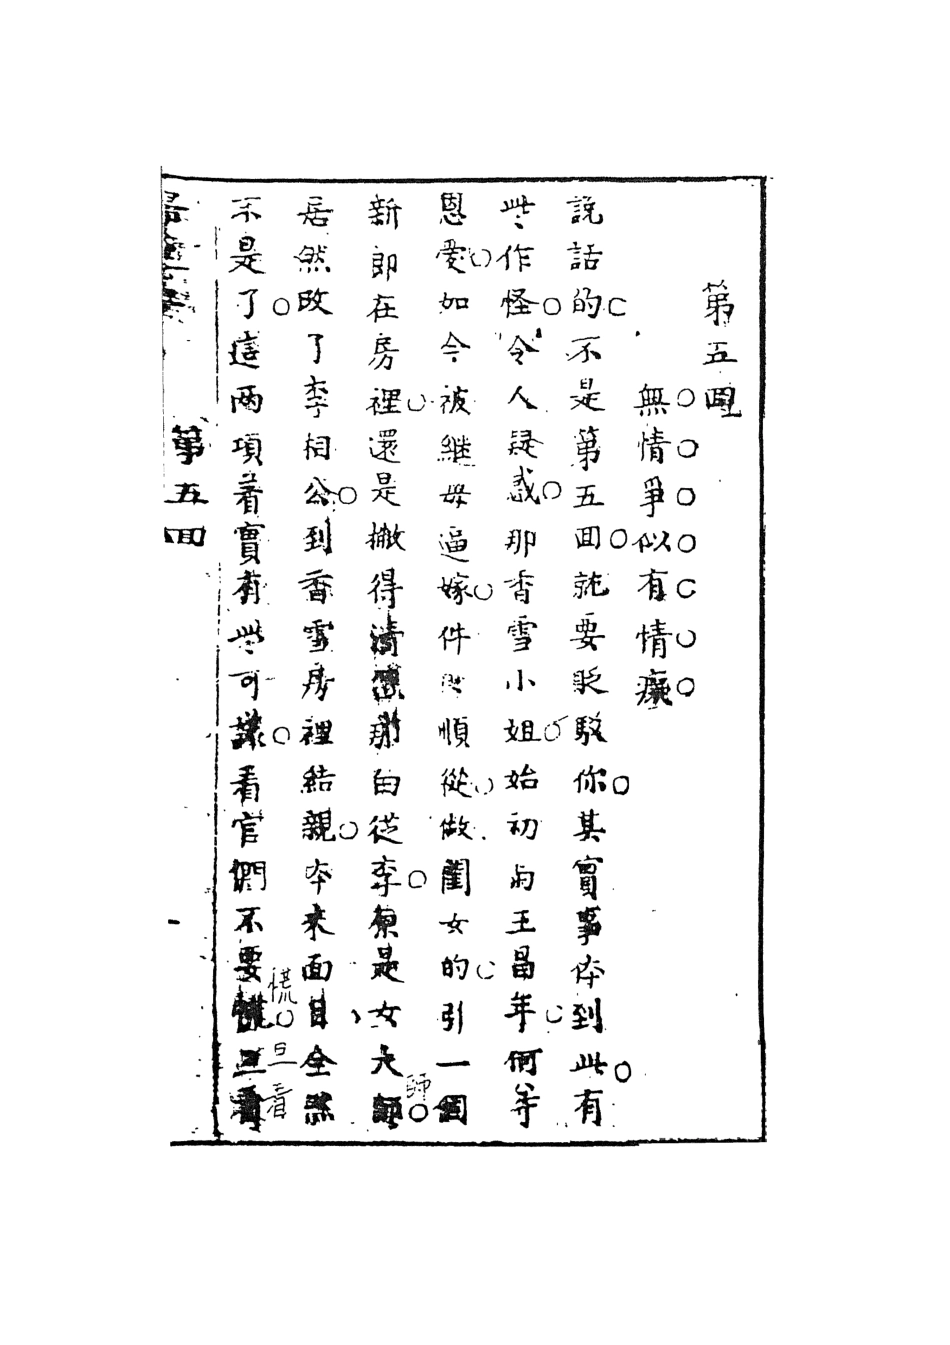 第五回
無情爭似有情癡
說話的不是第五回就要貶駁你其實事体到此有
些作怪令人疑惑那香雪小姐始初与王昌年何等
恩愛如今被継母逼嫁件件順從做閨女的引一個
新郎在房裡還是撇得清那白從李原是女大師
居然改了李相公到香雪房裡結親本来面目全然
不是了這两項着實有些可議看官們不要慌且看
第五回
師
慌
旦看